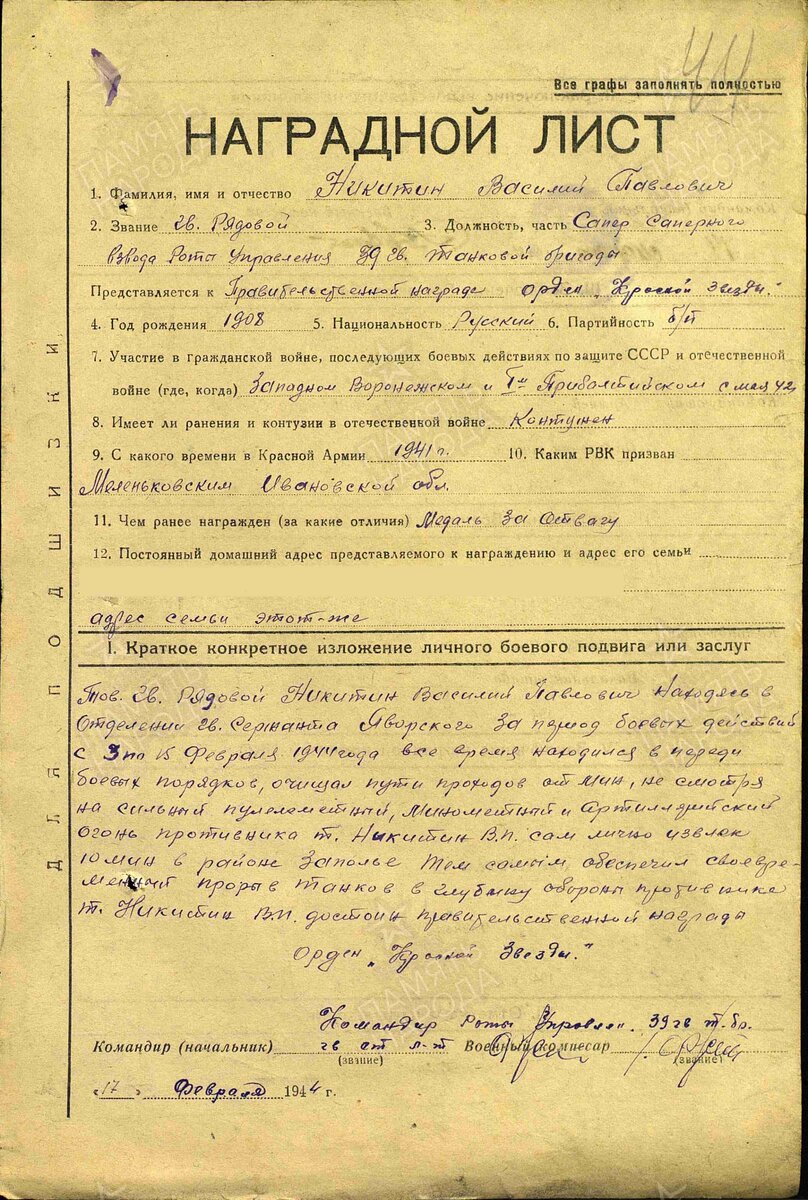 Все графы заполнять полностью
НАГРАДНОЙ ЛИСТ
1. Фамилия, имя и отчество Никитин Василий Павлович
2. Звание гв. Рядовой 3. Должность, часть Сапер Саперного
взвода Роты Управления 39 гв. танковой бригады
Представляется к Правительственной награде орден „Красной звезды."
4. Год рождения 1908 5. Национальность Русский 6. Партийность б/п
7. Участие в гражданской войне, последующих боевых действиях по защите СССР и отечественной
войне (где, когда) Западном Воронежском и 1м Прибалтийском с мая 42
8. Имеет ли ранения и контузии в отечественной войне Контужен
9. С какого времени в Красной Армии 1941 г. 10. Каким РВК призван
Меленьковским Ивановской обл.
11. Чем ранее награжден (за какие отличия) Медаль За Отвагу
12. Постоянный домашний адрес представляемого к награждению и адрес его семьи
адрес семьи этот-же
I. Краткое конкретное изложение личного боевого подвига или заслуг
Тов. гв. Рядовой Никитин Василий Павлович находясь в
Отделении гв. Сержанта Яворского За период боевых действий
с 3 по 15 Февраля 1944 года все время находился в переди
боевых порядков, очищал пути проходов от мин, не смотря
на сильный пулеметный, Минометный и Артиллерийский
Огонь противника т. Никитин В.П. сам лично извлек
10 мин в районе Заполье Тем самым обеспечил своевре-
менный прорыв танков в глубину обороны противника
т. Никитин В.П. достоин правительственной награды
Орден „Красной Звезды."
Командир Роты Управлен. 39 гв т. бр.
Командир (начальник) гв ст л-т Военный комиссар
(звание) (звание)
„17" Февраля 1944 г.
ДЛЯ ПОДШИВКИ
ПАМЯТЬ НАРОДА